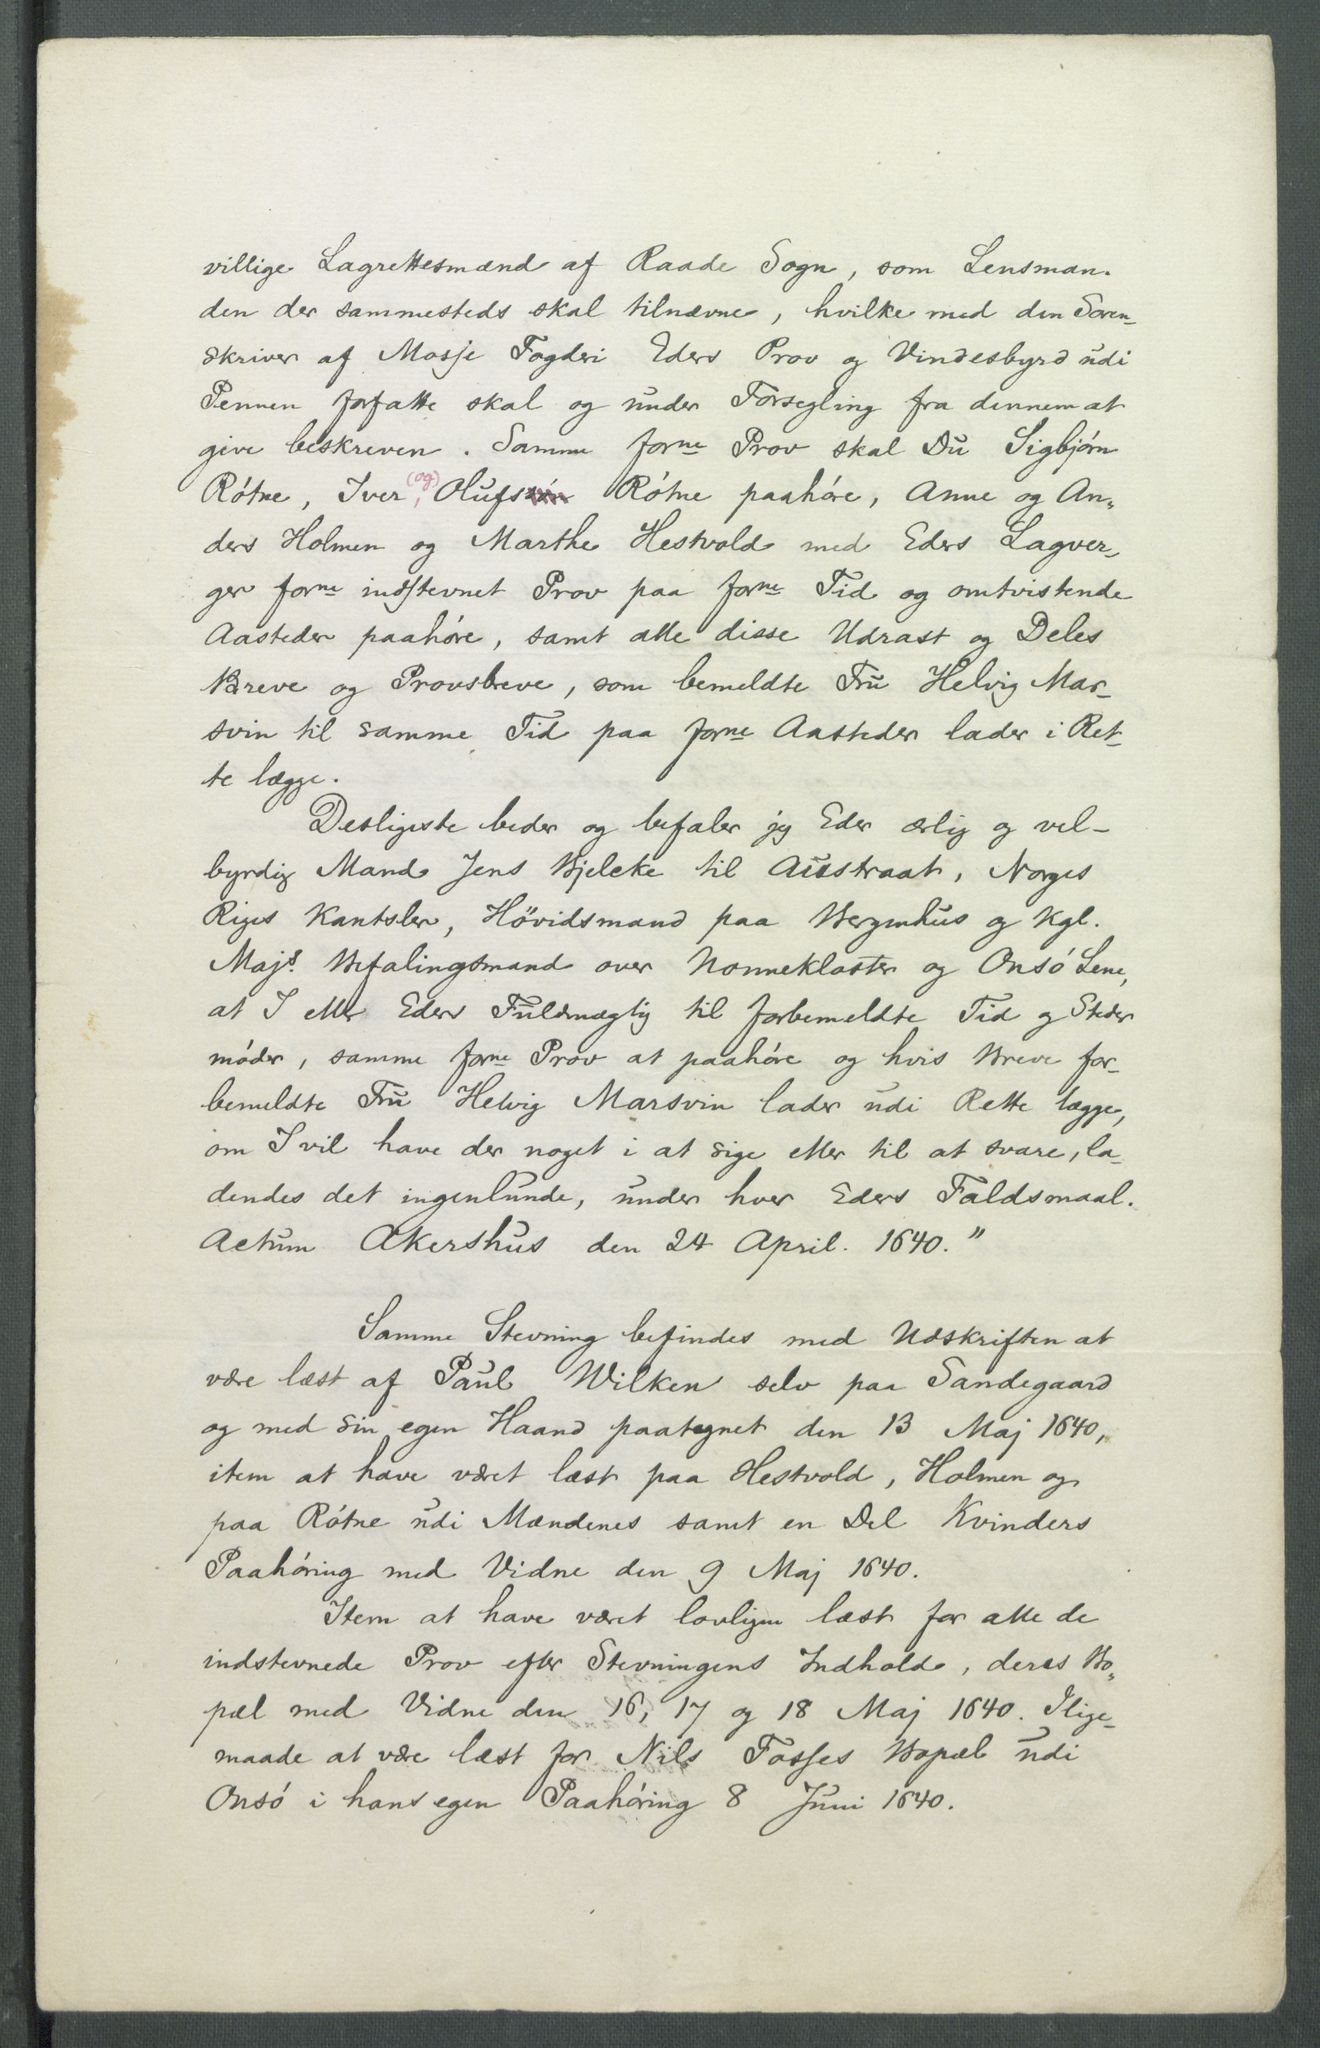 villige Lagrettesmænd af Raade Sogn, som Lensman-
den der sammesteds skal tilnævne, hvilke med den Soren-
skriver af Mosse Fogderi Eders Prov og Vindesbyrd udi
Pennen forfatte skal og under Forsegling fra dennem at
give beskreven. Samme forne Prov skal Du Sigbjørn
Røtne, Iver, (og) Olufssøn Røtne paahøre, Anne og An-
ders Holmen og Marthe Hestvold med Eders Lagver-
ger forne indstevnet Prov paa forne Tid og omtvistende
Aasteder paahøre, samt alle disse Udrast og Deles
Breve og Provsbreve, som bemeldte Fru Helvig Mar-
svin til samme Tid paa forne Aasteder lader i Ret-
te lægge.
Desligeste beder og befaler jeg Eder ærlig og vel-
byrdig Mand Jens Bjelcke til Austraat, Norges
Riges Kantsler, Hövidsmand paa Bergenhus og Kgl.
Majs. Befalingsmand over Nonnekloster og Onsø Lene,
at I eller Eders Fuldmægtig til forbemeldte Tid og Steder
møder, samme forne Prov at paahøre og hvis Breve for-
bemeldte Fru Helvig Marsvin lader udi Rette lægge,
om I vil have der noget i at sige eller til at svare, la-
dendes det ingenlunde, under hver Eders Faldsmaal.
Actum Akershus den 24 April. 1640."
Samme Stevning befindes med Udskriften at
være læst af Paul Wilken selv paa Sandegaard
og med sin egen Haand paategnet den 13 Maj 1640,
item at have været læst paa Hestvold, Holmen og
paa Røtne udi Mændenes samt en Del Kvinders
Paahøring med Vidne den 9 Maj 1640.
Item at have været lovligen læst for alle de
indstevnede Prov efter Stevningens Indhold, deres Bo-
pæl med Vidne den 16, 17 og 18 Maj 1640. Ilige-
maade at være læst for Nils Fosses Bopæl udi
Onsø i hans egen Paahøring 8 Juni 1640.